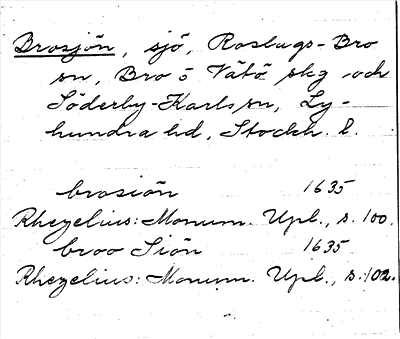 Brosjön, sjö, Roslags-Bro
sn, Bro o Vätö skg och
Söderby-Karls sn, Ly-
hundra hd, Stockh. l.
brosiön 1635
Rhezelius: Monum. Upl., s. 100.
broo Siön 1635
Rhezelius: Monum. Upl., s. 102.